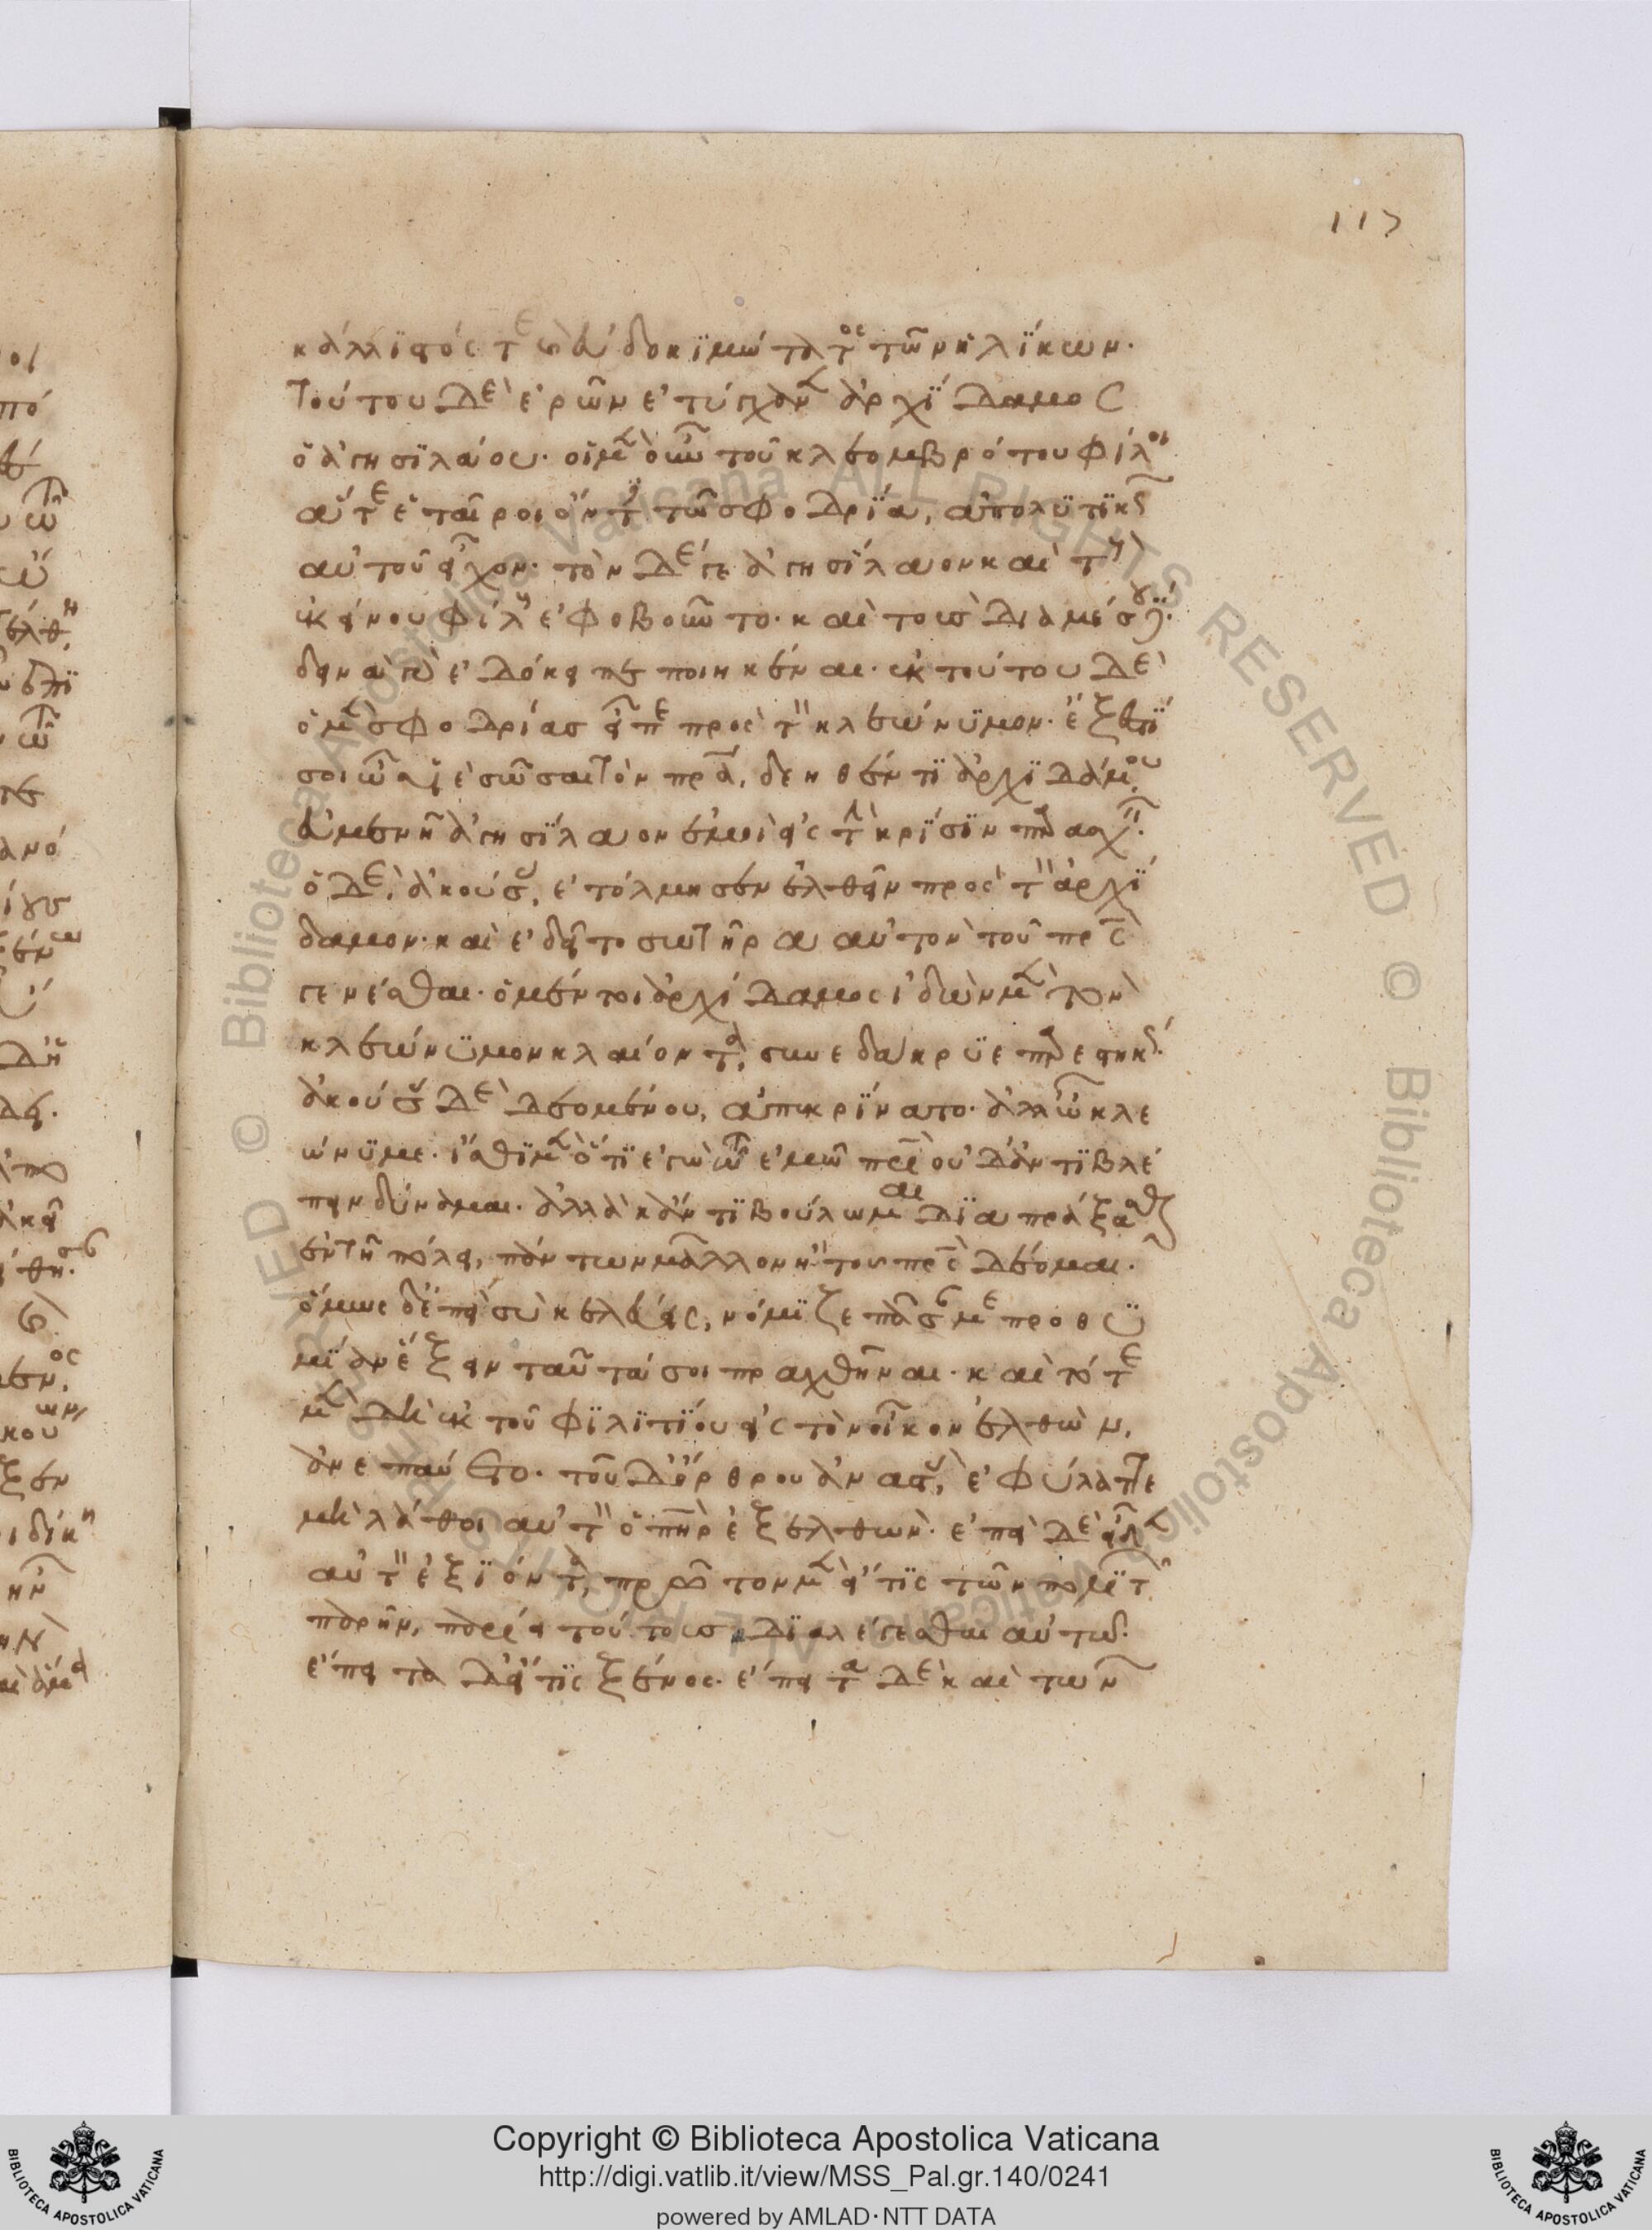 117
κάλλιστός τε καὶ εὐδοκιμώτατος τῶν ἡλίκων.
τούτου δὲ ἐρῶν ἐτύγχανεν ἀρχίδαμος
ὁ ἀγησιλάου. οἱ μὲν οὖν τοῦ κλεομβρότου φίλοι
ἅτε ἑταῖροι ὄντες τῶ σφοδρία, ἀπολυτικῶς
αὐτοῦ εἶχον. τὸν δέ γε ἀγησίλαον καὶ τοὺς
ἐκείνου φίλους ἐφοβοῦντο. καὶ τοὺς διὰ μέσου.
δεινὰ γὰρ ἐδόκει πεποιηκέναι. ἐκ τούτου δὲ
ὁ μὲν σφοδρίας εἶπε πρὸς τὸν κλεώνυμον. ἔξεστί
σοι ὦ υἱὲ σῶσαι τὸν πατέρα, δεηθέντι ἀρχιδάμου,
εὐμενῆ ἀγησίλαον ἐμοὶ εἰς τὴν κρίσιν παρασχεῖν.
ὁ δὲ, ἀκούσας, ἐτόλμησεν ἐλθεῖν πρὸς τὸν ἀρχί
δαμον. καὶ ἐδεῖτο σωτῆρα αὐτὸν τοῦ πατρὸς
γενέσθαι. ὁ μέντοι ἀρχίδαμος ἰδὼν μὲν τὸν
κλεώνυμον κλαίοντα, συνεδάκρυε παρεστηκώς.
ἀκούσας δὲ δεομένου, ἀπεκρίνατο. ἀλλ' ὦ κλε
ώνυμε. ἴσθι μὲν ὅτι ἐγὼ τῶ ἐμῶ πατρὶ οὐδ' ἀντιβλέ
πειν δύναμαι. ἀλλὰ κἄν τι βούλωμαι διαπράξασθαι
ἐν τῆ πόλει, πάντων μᾶλλον ἢ τοῦ πατρὸς δέομαι.
ὅμως δ' ἐπεὶ σὺ κελεύεις, νόμιζε πᾶσάν με προθυ
μίαν ἕξειν ταῦτά σοι πραχθῆναι. καὶ τότε
μὲν δὴ ἐκ τοῦ φιλιτίου εἰς τὸν οἶκον ἐλθὼν,
ἀνεπαύετο. τοῦ δ' ὄρθρου ἀναστὰς, ἐφύλαττε
μὴ λάθοι αὐτὸν ὁ πατὴρ ἐξελθών. ἐπεὶ δὲ εἶδεν
αὐτὸν ἐξιόντα, πρῶτον μὲν εἴ τις τῶν πολιτῶν
παρῆν, παρίει τούτους διαλέγεσθαι αὐτῶ.
ἔπειτα δ' εἴ τις ξένος. ἔπειτα δὲ καὶ τῶν
Copyright © Biblioteca Apostolica Vaticana
http://digi.vatlib.it/view/MSS_Pal.gr.140/0241
powered by AMLAD·NTT DATA